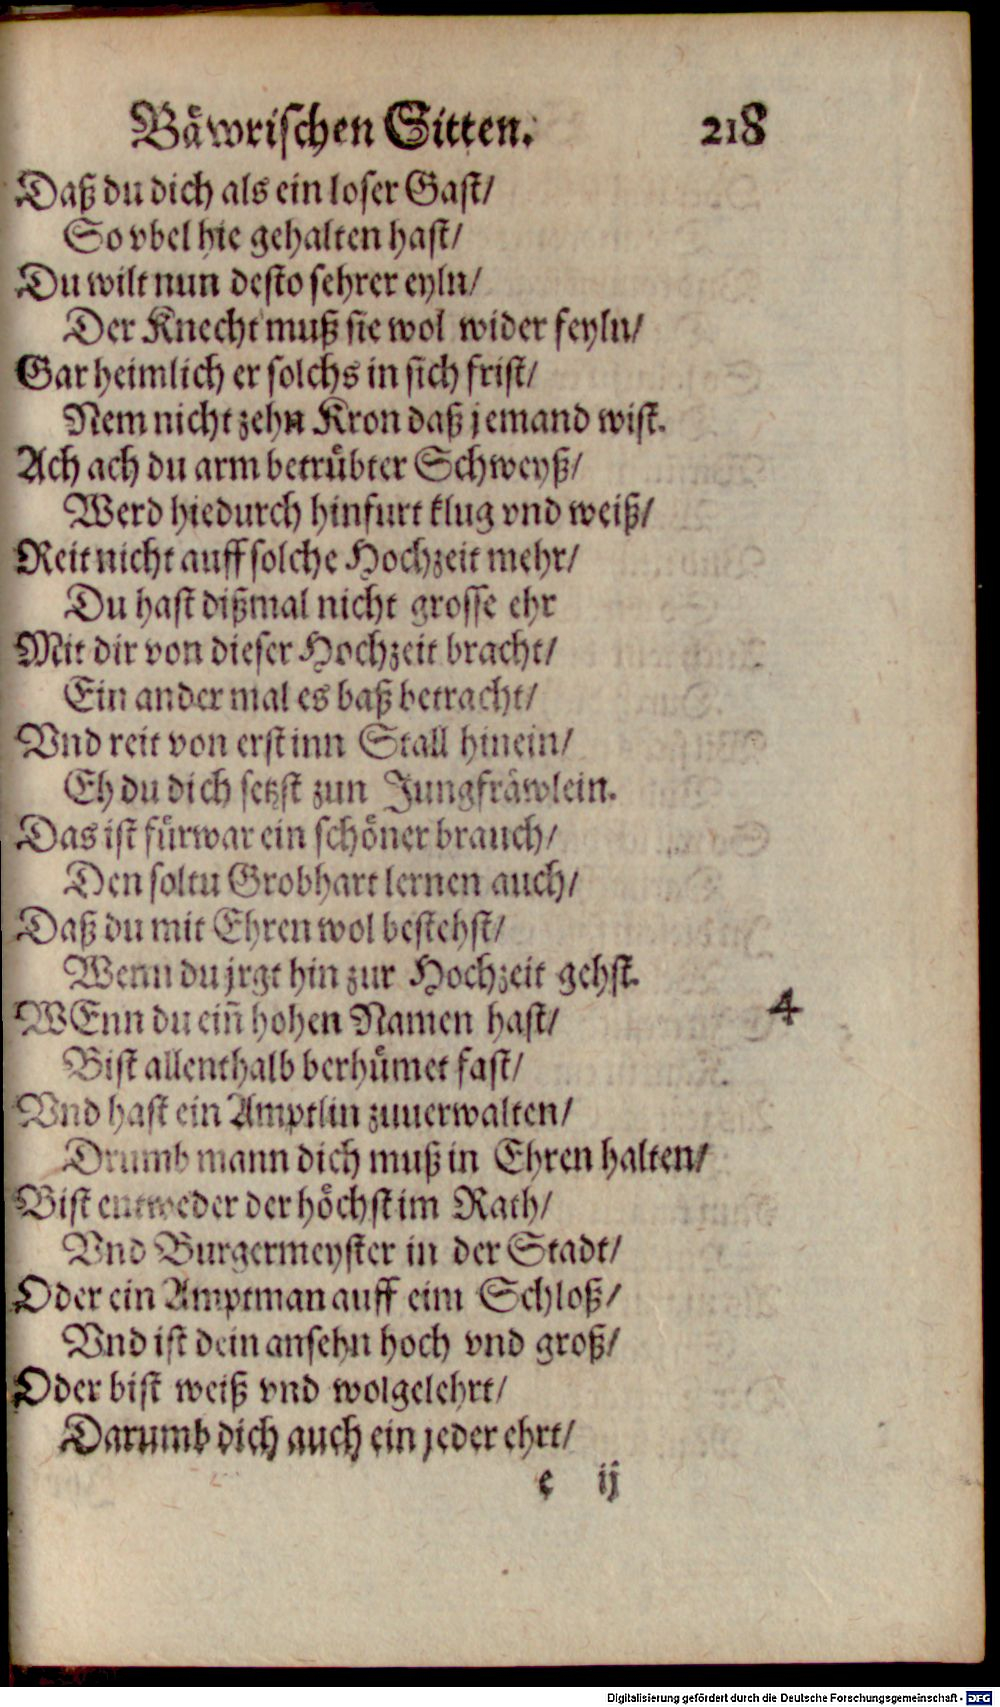 Båwrischen Sitten. 218
Daß du dich als ein loser Gast/
So vbel hie gehalten hast/
Du wilt nun desto sehrer eyln/
Der Knecht muß sie wol wider feyln/
Gar heimlich er solchs in sich frist/
Nem nicht zehn Kron daß jemand wist.
Ach ach du arm betrůbter Schweyß/
Werd hiedurch hinfurt klug vnd weiß/
Reit nicht auff solche Hochzeit mehr/
Du hast dißmal nicht grosse ehr
Mit dir von dieser Hochzeit bracht/
Ein ander mal es baß betracht/
Vnd reit von erst inn Stall hinein/
Eh du dich setzst zun Jungfråwlein.
Das ist fůrwar ein schöner brauch/
Den soltu Grobhart lernen auch/
Daß du mit Ehren wol bestehst/
Wenn du jrgt hin zur Hochzeit gehst.
WEnn du eiñ hohen Namen hast/ 4
Bist allenthalb berhůmet fast/
Vnd hast ein Amptlin zuuerwalten/
Drumb mann dich muß in Ehren halten/
Bist entweder der höchst im Rath/
Vnd Burgermeyster in der Stadt/
Oder ein Amptman auff eim Schloß/
Vnd ist dein ansehn hoch vnd groß/
Oder bist weiß vnd wolgelehrt/
Darumb dich auch ein jeder ehrt/
e ij
Digitalisierung gefördert durch die Deutsche Forschungsgemeinschaft - DFG